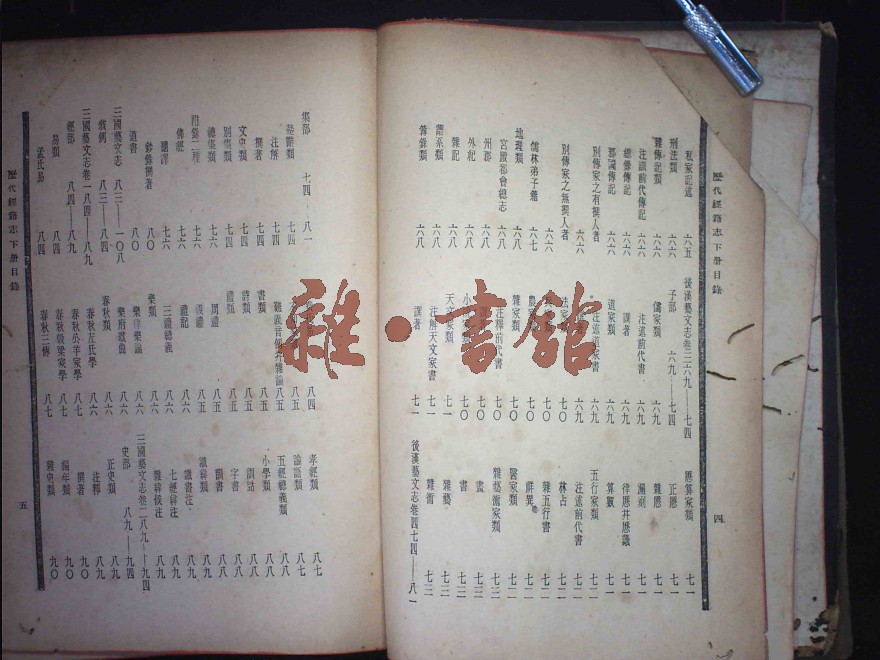 歷代經籍志下册目錄
四
私家記述 六五
刑法類 六六
雜傳記類 六六
注譔前代傳記 六六
總錄傳記 六六
郡國傳記 六六
別傳家之有撰人者 六六
別傳家之無撰人者
儒林弟子籍 六七
地理類 六八
宮殿都會總志 六八
州郡 六八
外紀 六八
雜記 六八
譜系類 六八
簿錄類 六八
後漢藝文志卷三 六九——七四
子部 六九——七四
儒家類 六九
注述前代書 六九
譔著 六九
道家類 六九
注述道家書 六九
法家 七〇
農家 七〇
雜家類 七〇
注釋前代書 七〇
小 七〇
天文家類 七一
注解天文家書 七一
譔著 七一
曆算家類 七一
正曆 七一
雜曆 七一
漏刻 七一
律曆幷曆議 七一
算數 七一
五行家類 七二
注述前代書 七二
林占 七二
雜五行書 七二
辟異 七二
醫家類 七二
雜藝術家類 七二
畫 七三
書 七三
雜藝 七三
雜術 七三
後漢藝文志卷四 七四——八一
集部 七四——八一
楚辭類 七四
注解 七四
撰著 七四
文史類 七四
別集類 七四
總集類 七六
附錄二種 七六
佛經 七六
翻譯 七六
鈔錄撰著 八〇
道書 八〇
三國藝文志 八三——一〇八
敘例 八三——八四
三國藝文志卷一 八四——八九
經部 八四——八九
易類 八四
孟氏易 八四
八四
八五
難義音注幷雜論 八五
書類 八五
詩類 八五
禮類 八五
周禮 八五
儀禮 八五
禮記 八六
三禮總義 八六
樂類 八六
樂律樂論 八六
樂府歌曲 八六
春秋類 八六
春秋左氏學 八六
春秋公羊家學 八七
春秋穀梁家學 八七
春秋三傳 八七
孝經類 八七
論語類 八七
五經總義類 八八
小學類 八八
訓詁 八八
字書 八八
韻書 八八
讖緯類 八九
讖書注 八九
七經緯注 八九
雜緯候注 八九
三國藝文志卷二 八九——九四
史部 八九——九四
正史類 八九
注釋 九〇
撰著 九〇
編年類 九〇
雜史類 九〇
歷代經籍志下册目錄
五
雜·書館